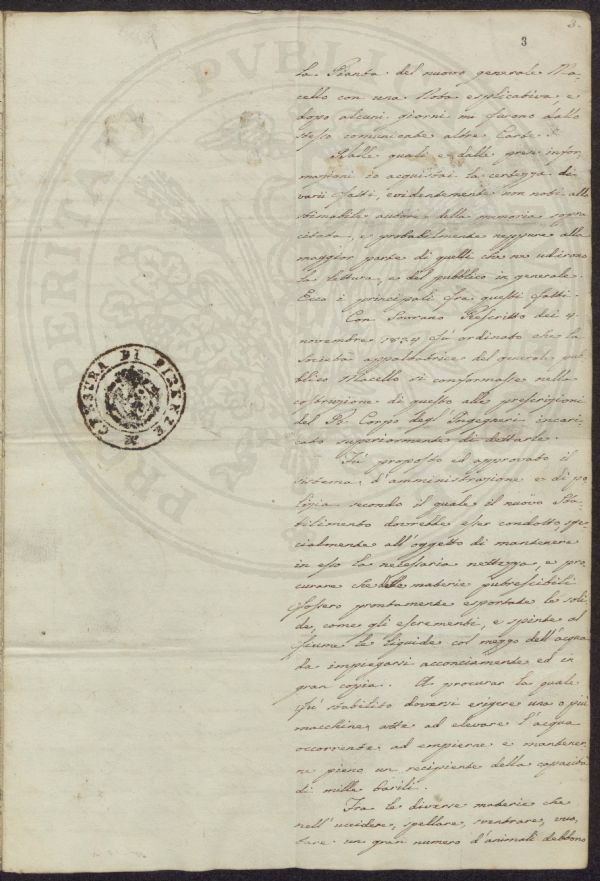 3.
3
la Pianta del nuovo generale Ma-
cello con una Nota esplicativa, e
dopo alcuni giorni mi furono dallo
stesso comunicate altre Carte.
Dalle quali e dalle prese infor-
mazioni io acquistai la certezza di
varii fatti, evidentemente non noti allo
stimabile autore della memoria sopra
citata, e probabilmente neppure alla
maggior parte di quelli che ne udirono
la lettura, e del pubblico in generale.
Ecco i principali fra questi fatti.
Con Sovrano Rescritto dei 4
novembre 1834 fù ordinato che la
Società appaltatrice del general pub-
blico Macello si conformasse nella
costruzione di questo alle prescrizioni
del R. Corpo degl'Ingegneri incari-
cato superiormente di dettarle.
Fù proposto ed approvato il
sistema d'amministrazione e di po-
lizia secondo il quale il nuovo Sta-
bilimento dovrebbe esser condotto, spe-
cialmente all'oggetto di mantenere
in esso la necessaria nettezza, e pro-
curare che delle materie putrescibili
fossero prontamente esportate le soli-
de, come gli escrementi, e spinte al
fiume le liquide col mezzo dell'acqua
da impiegarsi acconciamente ed in
gran copia. A procurar la quale
fù stabilito doversi erigere una o più
macchine atte ad elevare l'acqua
occorrente ad empierne e mantener-
ne pieno un recipiente della capacità
di mille barili.
Fra le diverse materie che
nell'uccidere, spellare, sventrare, vuo-
tare un gran numero d'animali debbono
CENSURA DI FIRENZE
PUBLIC